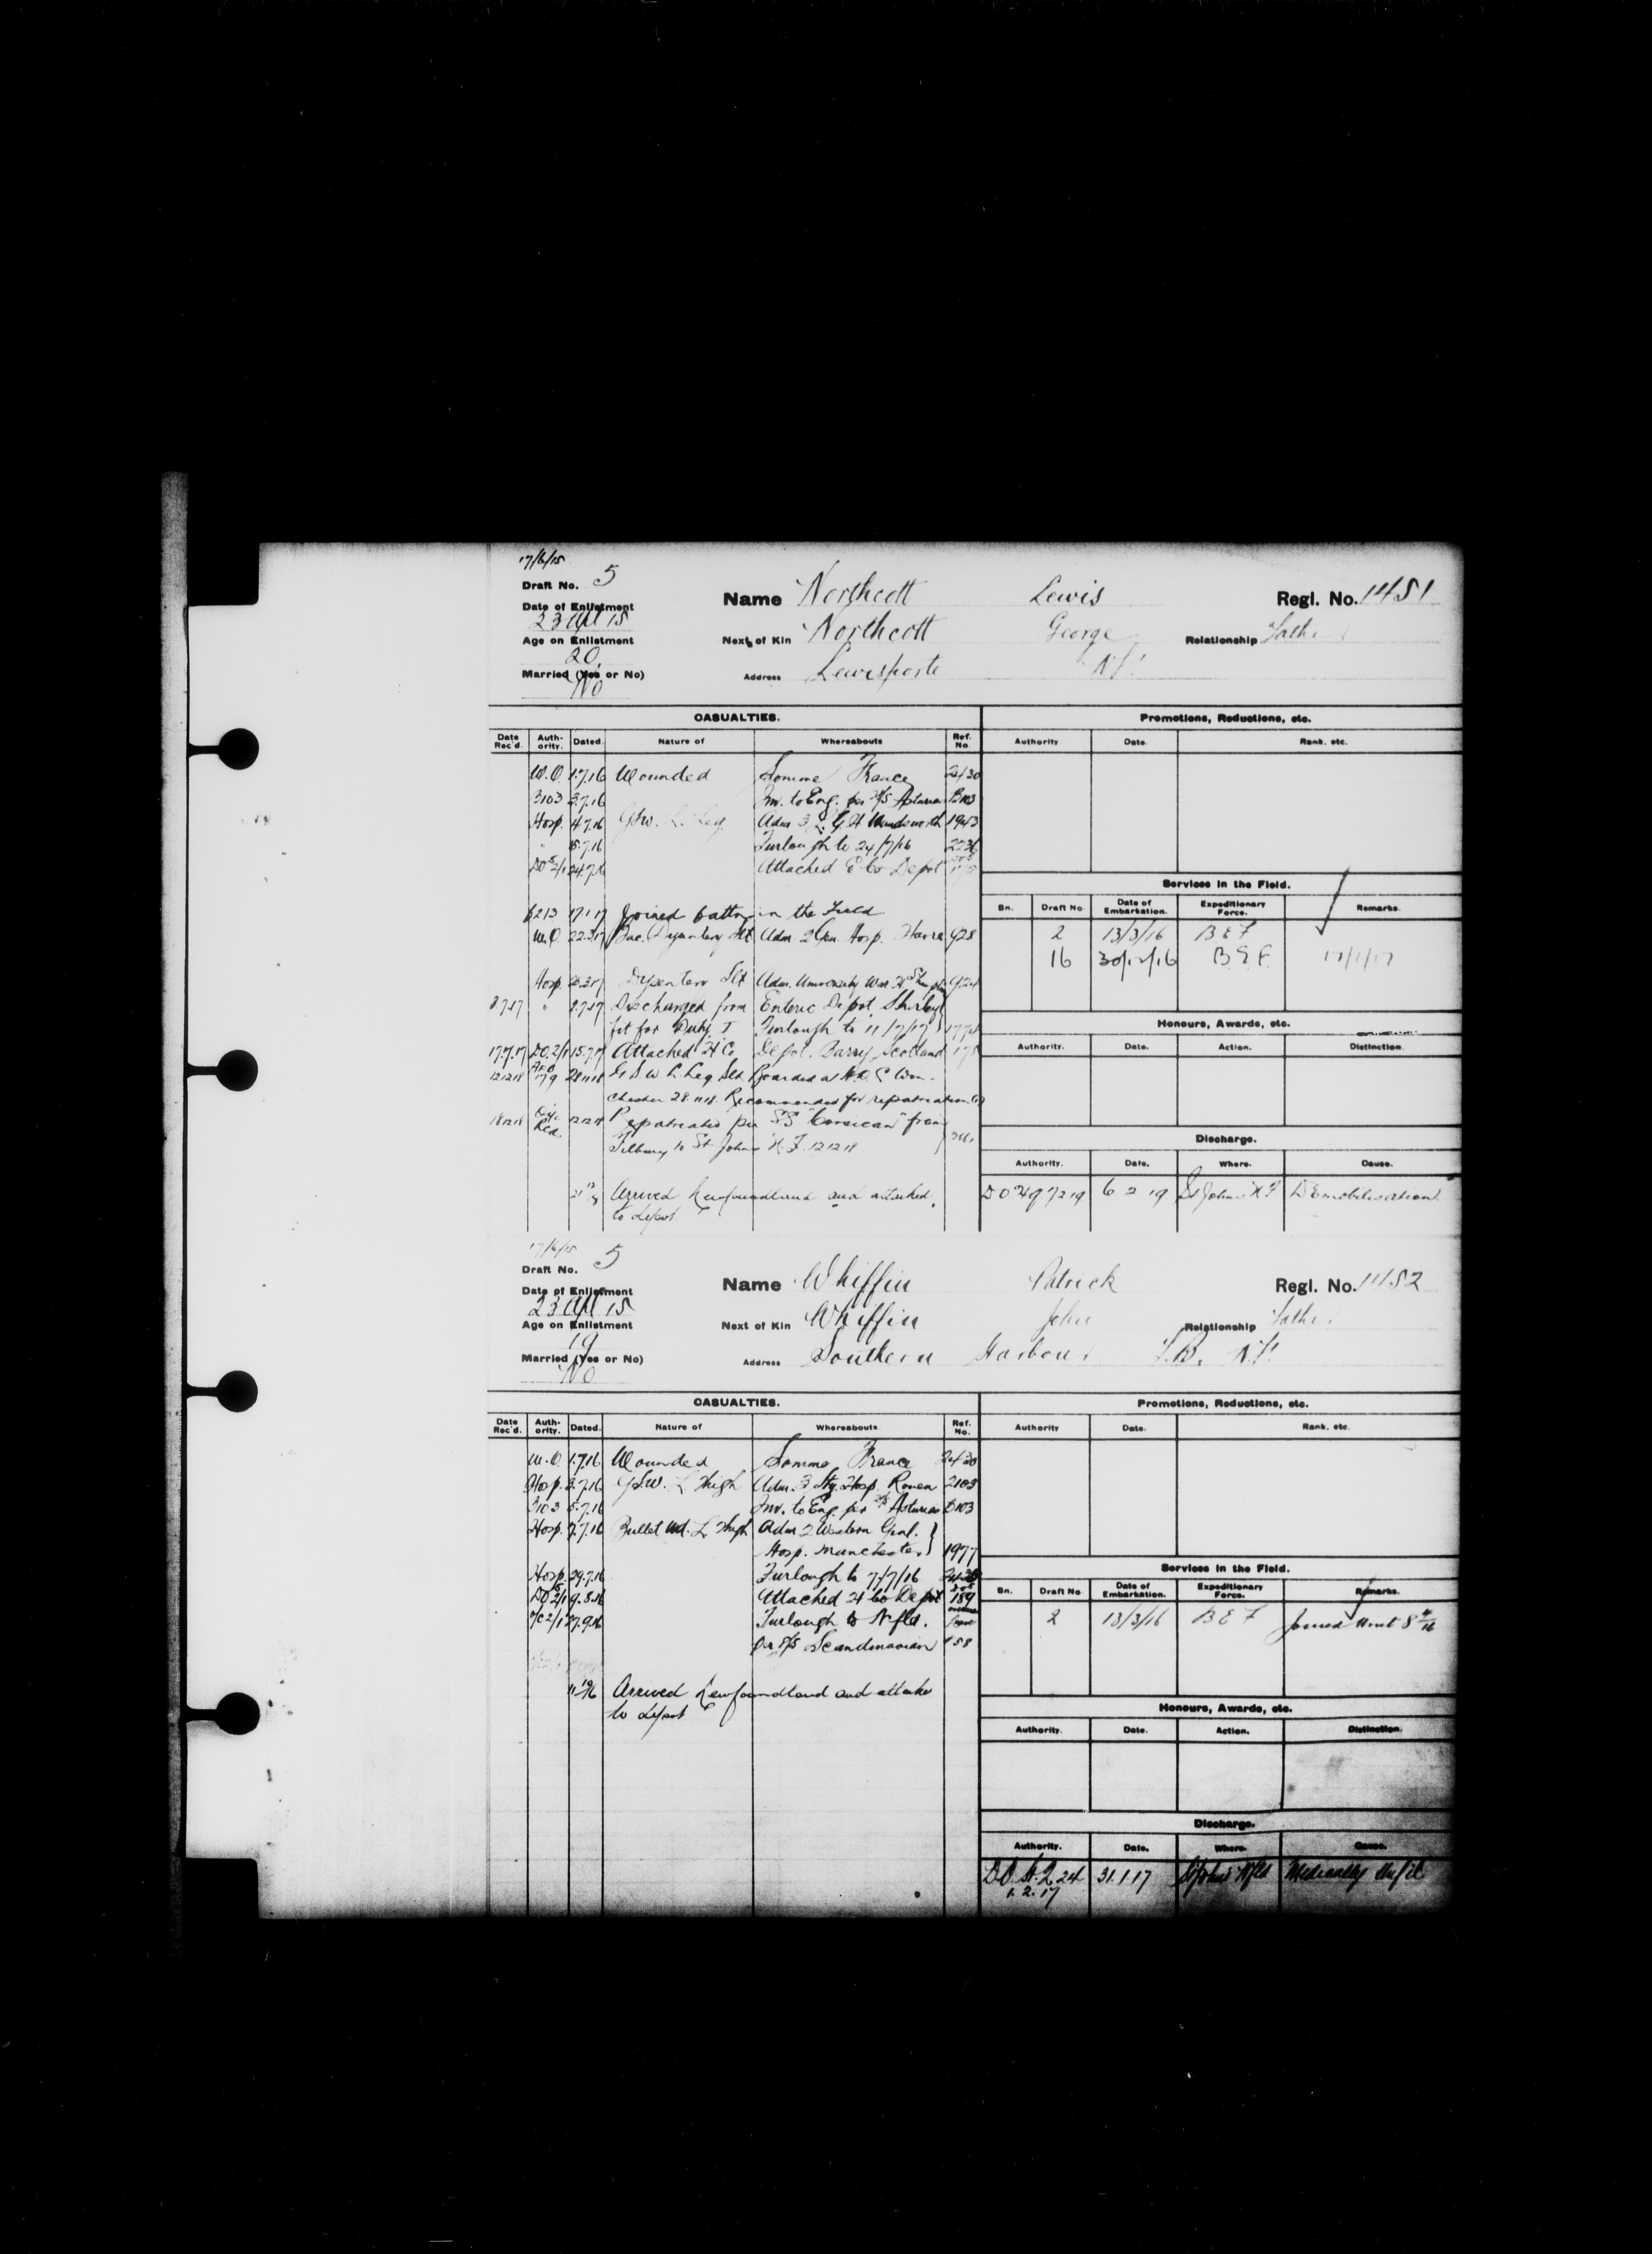 17/6/15
Draft No. 5
Name Northcott Lewis Regl. No. 1451
Date of Enlistment
23 Apl 15
Next of Kin Northcott George Relationship Father
Age on Enlistment
20.
Address Lewisporte N.F.
Married (Yes or No)
No
CASUALTIES. Promotions, Reductions, etc.
Date Rec'd. Auth-ority. Dated. Nature of Whereabouts Ref. No Authority Date. Rank. etc.
W.O. 1.7.16 Wounded Somme France 2430
B103 3.7.16 Inv. to Eng. per H/S Asturias B103
Hosp. 4.7.16 G.S.W. L. Leg. Adm. 3 L. G. H Wandsworth 1943
" 15.7.16 Furlough to 24/7/16 2236
DO 2/1 24.7.16 Attached E Co Depot
Services in the Field.
Bn. Draft No Date of Embarkation. Expeditionary Force. Remarks.
B213 17.1.17 Joined battn in the Field
2 13/3/16 B E F
W.O 22.3.17 Dysentery Slt Adm. 2 Gen. Hosp. Havre 928
16 30/12/16 B.E.F. 17/1/17
Hosp. Dysentery Slt Adm. University War H
8.7.17 " 2.7.17 Discharged from Enteric Depot, Shirley
fit for Duty I Furlough to 11/7/17
Honours, Awards, etc.
Authority. Date. Action. Distinction.
17.7.17 DO.2/1 15.7.17 Attached "H" Co Depot. Barry, Scotland
12.12.18 179 28.11.18 G.S.W L. Leg Slt. Boarded at H.D.C Win-
chester 28.11.18. Recommended for repatriation
18.12.18 12.12.18 Repatriated per SS "Corsican" from
Tilbury to St. Johns N.F. 12.12.18
Discharge.
Authority. Date. Where. Cause.
Arrived Newfoundland and attached
to depot
6 2 19 St Johns N F Demobilisation
17/6/15
Draft No. 5
Name Whiffin Patrick Regl. No. 1452
Date of Enlistment
23 Apl 15
Next of Kin Whiffin John Relationship Father
Age on Enlistment
19
Address Southern Harbour P.B. N.F.
Married (Yes or No)
No
CASUALTIES. Promotions, Reductions, etc.
Date Rec'd. Auth-ority. Dated. Nature of Whereabouts Ref. No. Authority Date. Rank. etc.
W.O. 1.7.16 Wounded Somme France 2430
Hosp. 3.7.16 G.S.W. L Thigh Adm. 3 Sty. Hosp. Rouen 2103
B103 5.7.16 Inv. to Eng. per H/S Asturias B103
Hosp. 7.7.16 Bullet Wd. L Thigh Adm 2 Western Genl.
Hosp. Manchester 1977
Services in the Field.
Hosp. 29.7.16 Furlough to 7/7/16
Bn. Draft No Date of Embarkation. Expeditionary Force. Remarks.
DO 2/1 9.8.16 Attached H Co Depot 189
2 13/3/16 B E F Joined Unit 8 4/16
O/C 2/1 27.9.16 Furlough to Nfld.
per S/S Scandinavian 158
11 10/16 Arrived Newfoundland and attached
to depot
Honours, Awards, etc.
Authority. Date. Action. Distinction.
Discharge.
Authority. Date. Where. Cause.
31.1.17 St Johns Nfld Medically Unfit
1.2.17